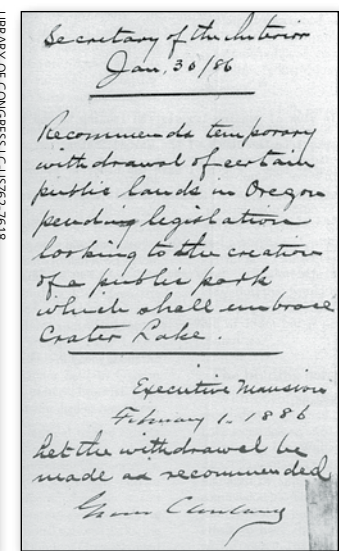 Secretary of the Interior
Jan. 30/86
Recommends temporary
withdrawal of certain
public lands in Oregon
pending legislation
looking to the creation
of a public park
which shall embrace
Crater Lake.
Executive Mansion
February 1. 1886
Let the withdrawal be
made as recommended
Grover Cleveland
LIBRARY OF CONGRESS LC-USZ62-7618